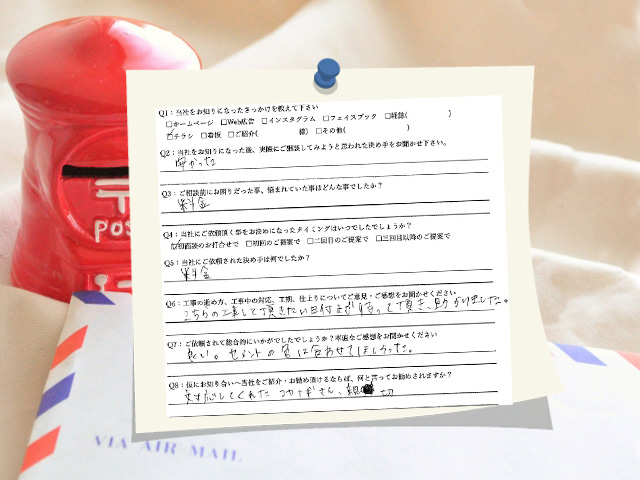 Q1：当社をお知りになったきっかけを教えて下さい
□ホームページ □Web広告 □インスタグラム □フェイスブック □雑誌( )
☑チラシ □看板 □ご紹介( 様) □その他( )
Q2：当社をお知りになった後、実際にご相談してみようと思われた決め手をお聞かせ下さい。
安かった
Q3：ご相談前にお困りだった事、悩まれていた事はどんな事でしたか？
料金
Q4：当社にご依頼頂く事をお決めになったタイミングはいつでしたでしょうか？
☑初回面談のお打合せで □初回のご提案で □二回目のご提案で □三回目以降のご提案で
Q5：当社にご依頼された決め手は何でしたか？
料金
Q6：工事の進め方、工事中の対応、工期、仕上りについてご意見・ご感想をお聞かせください
こちらの工事して頂きたい日付まで待って頂き、助かりました。
Q7：ご依頼されて総合的にいかがでしたでしょうか？率直なご感想をお聞かせください
良い。セメントの色は合わせてほしかった。
Q8：仮にお知り合いへ当社をご紹介・お勧め頂けるならば、何と言ってお勧めされますか？
対応してくれた さん、親切
POS
VIA AIR MAIL